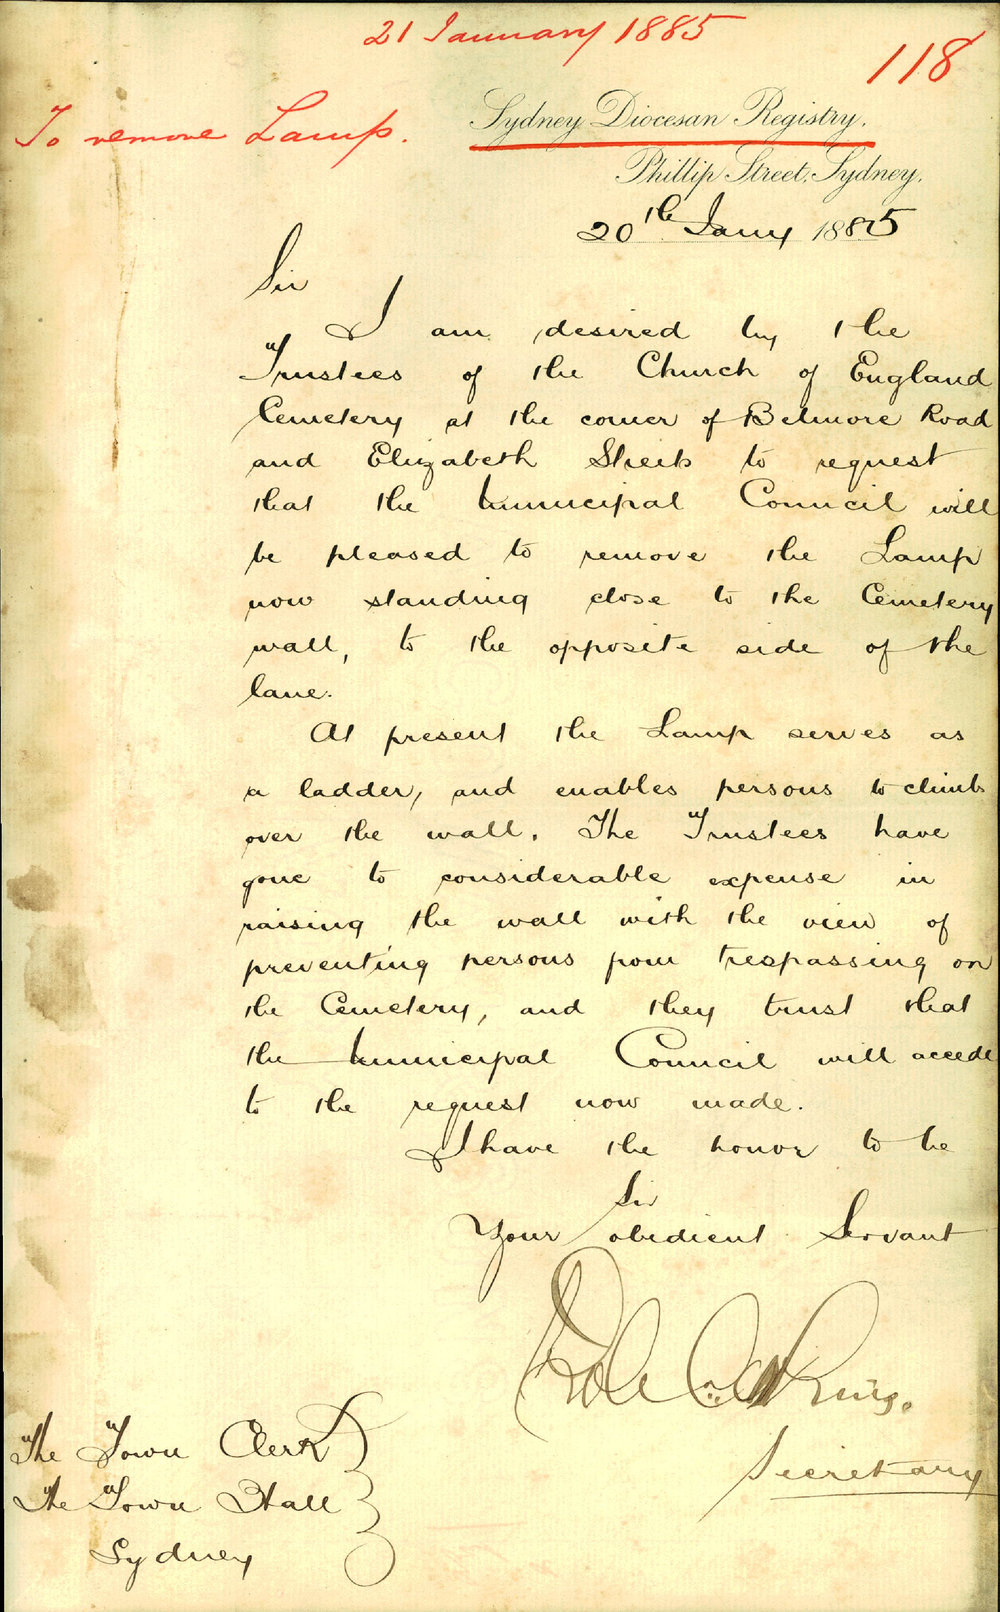 21 January 1885
118
To remove Lamp.
Sydney Diocesan Registry,
Phillip Street, Sydney,
20th Jany 1885
Sir
I am desired by the
Trustees of the Church of England
Cemetery at the corner of Belmore Road
and Elizabeth Streets to request
that the Municipal Council will
be pleased to remove the Lamp
now standing close to the Cemetery
wall, to the opposite side of the
lane.
At present the Lamp serves as
a ladder, and enables persons to climb
over the wall. The Trustees have
gone to considerable expense in
raising the wall with the view of
preventing persons from trespassing on
the Cemetery, and they trust that
the Municipal Council will accede
to the request now made.
I have the honor to be
Sir
Your obedient Servant
King.
Secretary
The Town Clerk
The Town Hall
Sydney